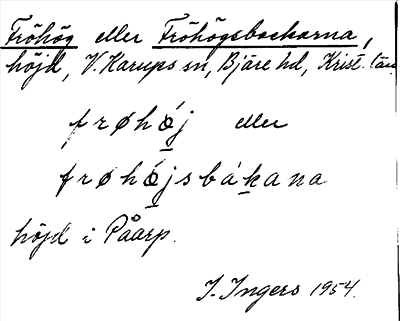 Fröhög eller Fröhögsbackarna,
höjd, V. Karups sn, Bjäre hd, Krist. län
frøhǿj eller
frøhǿjsbákana
höjd i Påarp.
I. Ingers 1954.